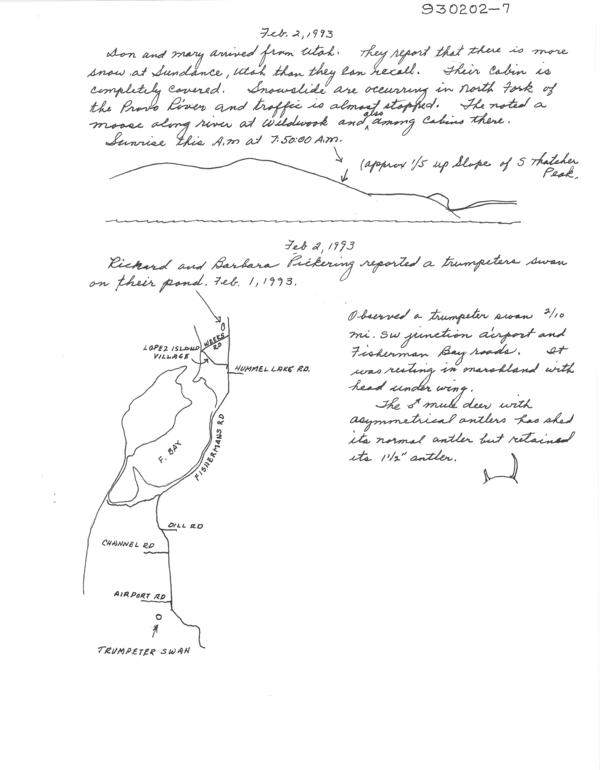 930202-7
Feb. 2, 1993
Don and Mary arrived from Utah. They report that there is more
snow at Sundance, Utah than they can recall. Their cabin is
completely covered. Snowslide are occurring in North Fork of
the Provo River and traffic is almost stopped. The noted a
moose along river at Wildwook and also among cabins there.
Sunrise this A.M at 7:50:00 A.M.
(approx 1/5 up slope of S Thatcher
Peak.
Feb 2, 1993
Rickard and Barbara Pickering reported a trumpeters swan
on their pond. Feb. 1, 1993.
Observed a trumpeter swan 2/10
mi. SW junction airport and
Fisherman Bay roads. It
was resting in marshland with
head under wing.
The ♂ mule deer with
asymmetrical antlers has shed
its normal antler but retained
its 1 1/2" antler.
WEEKS
RD
LOPEZ ISLAND
VILLAGE
HUMMEL LAKE RD.
FISHERMANS RD
F. BAY
DILL RD
CHANNEL RD
AIRPORT RD
TRUMPETER SWAN